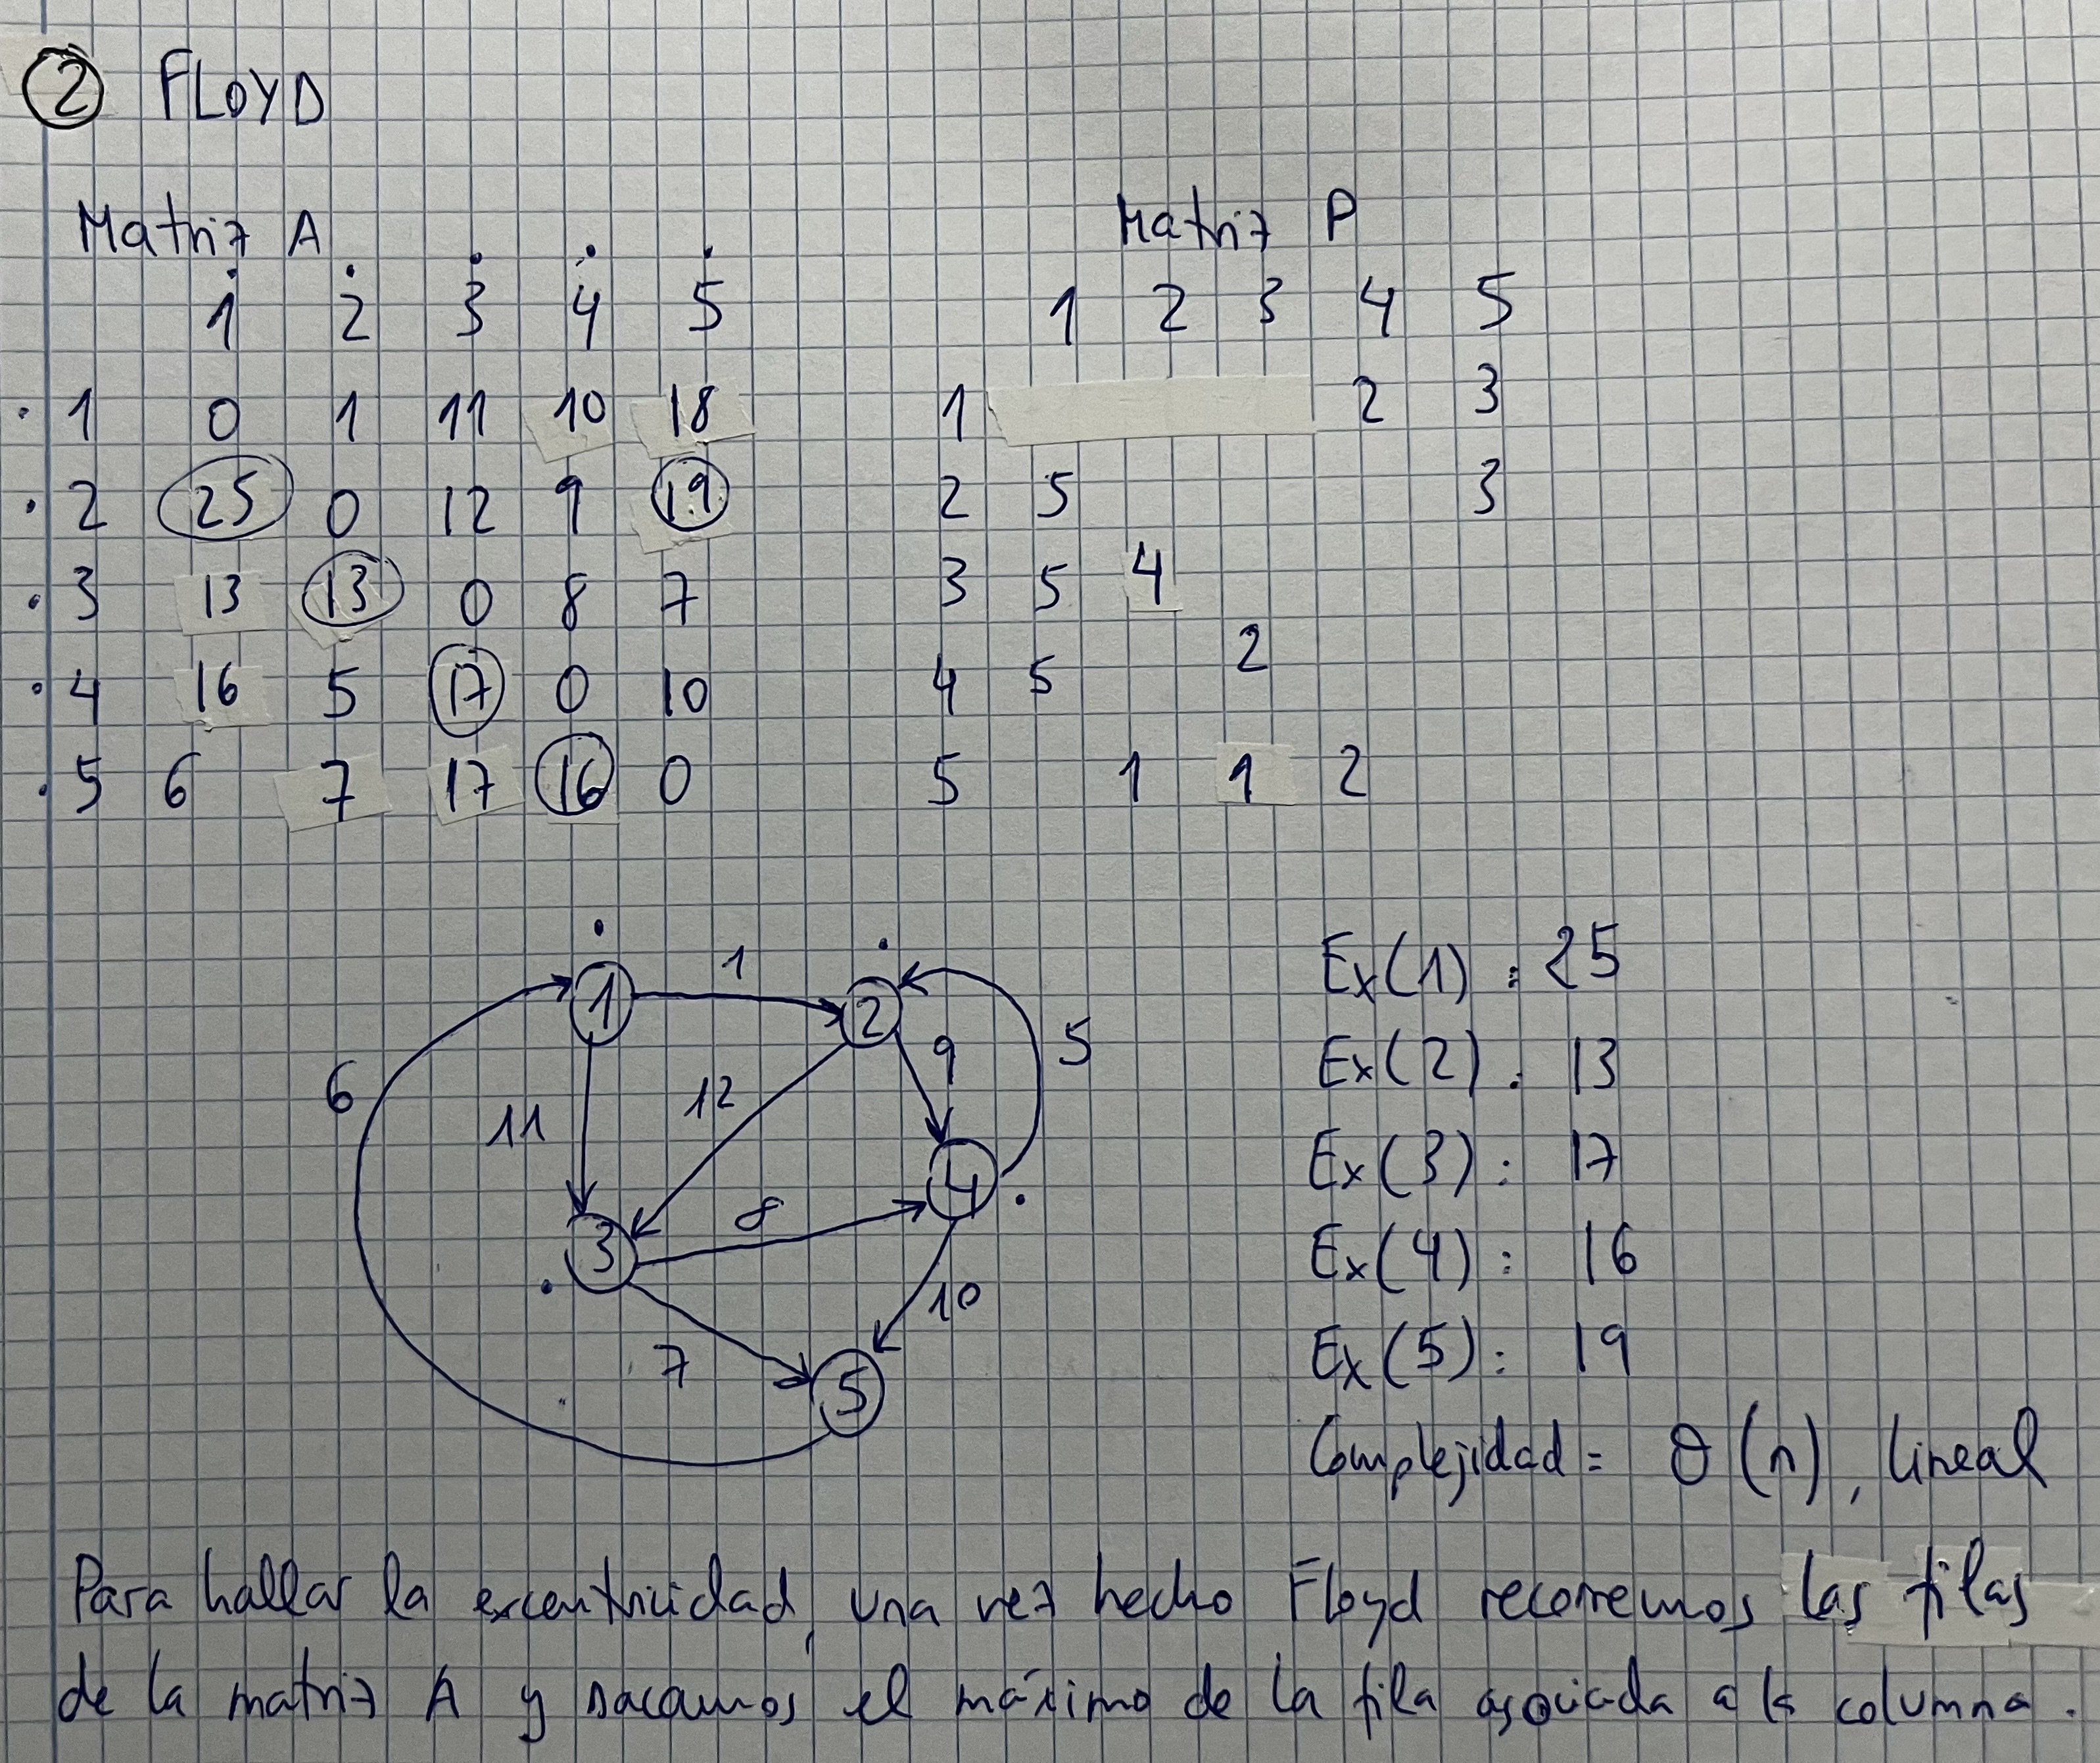 2 FLOYD
Matriz A
1 2 3 4 5
1 0 1 11 10 18
2 25 0 12 9 19
3 13 13 0 8 7
4 16 5 17 0 10
5 6 7 17 16 0
Matriz P
1 2 3 4 5
1 2 3
2 5 3
3 5 4
4 5 2
5 1 1 2
1
1
2
9
5
6
11
12
3
8
4
10
7
5
Ex(1): 25
Ex(2): 13
Ex(3): 17
Ex(4): 16
Ex(5): 19
Complejidad = θ(n), lineal
Para hallar la excentricidad, una vez hecho Floyd recorremos las filas
de la matriz A y sacamos el máximo de la fila asociada a la columna.